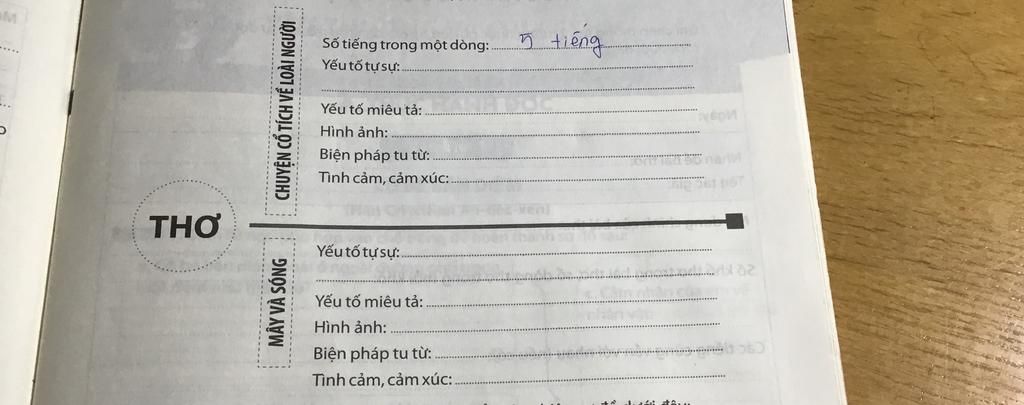 CHUYỆN CỔ TÍCH VỀ LOÀI NGƯỜI
Số tiếng trong một dòng: 5 tiếng
Yếu tố tự sự:
Yếu tố miêu tả:
Hình ảnh:
Biện pháp tu từ:
Tình cảm, cảm xúc:
THƠ
MÂY VÀ SÓNG
Yếu tố tự sự:
Yếu tố miêu tả:
Hình ảnh:
Biện pháp tu từ:
Tình cảm, cảm xúc: